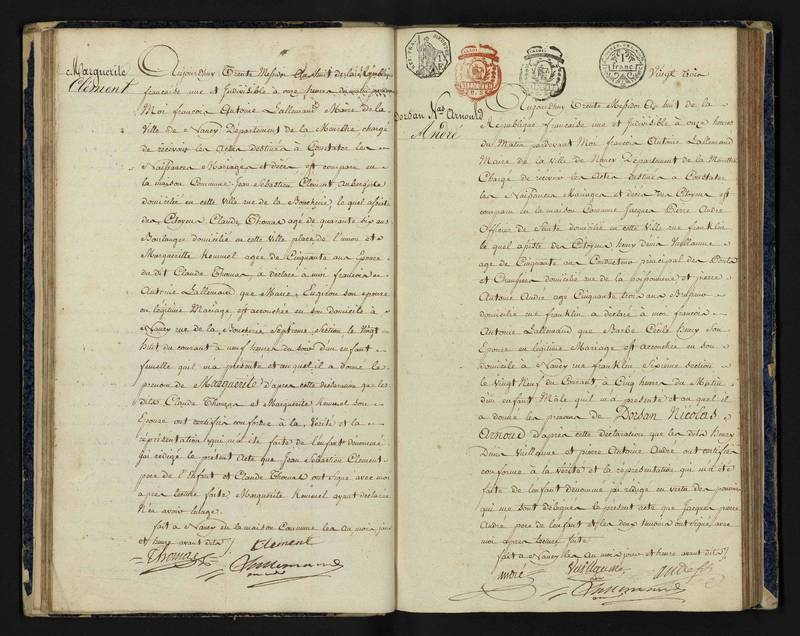 Marguerite
Clément
Aujourdhuy Trente Messidor an huit de la République
française une et Indivisible à onze heures du matin pardevant
Moi françois Antoine Lallemand Maire de la
Ville de Nancy Département de la Meurthe chargé
de recevoir les Actes destinés à Constater les
Naissances Mariages et décès est comparu en
la maison Commune Jean Sébastien Clément Aubergiste
domicilié en cette Ville rue de la Boucherie, lequel assisté
des Citoyens Claude Thomas agé de quarante six ans
Boulanger domicilié en cette Ville place de l'union et
Marguerite agée de Cinquante ans Epouse
du dit Claude Thomas, a déclaré à moi françois
Antoine Lallemand que Marie son épouse
en légitime Mariage, est accouchée en son domicile à
Nancy rue de la Boucherie Septième Section le Vingt
huit du courant à neuf heures du soir d'un enfant
femelle qu'il m'a présenté et auquel il a donné le
prenom de Marguerite d'après cette déclaration que les
dits Claude Thomas et Marguerite son
Epouse ont certifiée conforme à la Vérité et la
représentation qui m'a été faite de l'enfant dénommé
j'ai rédigé le présent Acte que Jean Sébastien Clément
père de l'Enfant et Claude Thomas ont signé avec moi
après lecture faite Marguerite ayant déclaré
n'en avoir l'usage.
fait à Nancy en la maison Commune les an mois jour
et heure avant dits
Clement
Thomas
Lallemand
1
franc
Vingt trois
Dorsan Nas Arnould
André
Aujourdhuy Trente Messidor an huit de la
République française une et Indivisible à onze heures
du Matin pardevant Moi françois Antoine Lallemand
Maire de la Ville de Nancy Département de la Meurthe
Chargé de recevoir les Actes destinés à Constater
les Naissances Mariages et décès des Citoyens est
comparu en la maison Commune Jacques Pierre André
Officier de Santé domicilié en cette Ville rue franklin
le quel assisté des Citoyens henry Vuillaume
agé de Cinquante ans Contrôleur principal des Ponts
et Chaussées domicilié rue de la poissonnerie et pierre
Antoine André agé Cinquante trois ans
domicilié rue franklin a déclaré à moi françois
Antoine Lallemand que Barbe Cécile henry Son
Epouse en légitime Mariage est accouchée en son
domicile à Nancy rue franklin Sixieme section
le Vingt Neuf du Courant à Cinq heures du Matin
d'un enfant Mâle qu'il m'a présenté et auquel il
a donné les prenoms de Dorsan Nicolas
Arnoud d'après cette déclaration que les dits henry
Vuillaume et pierre Antoine André ont certifiée
conforme à la vérité et la représentation qui m'a été
faite de l'enfant dénommé j'ai rédigé en vertu des pouvoirs
qui me sont délégués le present acte que Jacques pierre
André père de l'enfant et les deux témoins ont signé avec
moi après lecture faite
fait à Nancy les an mois jour et heure avant dits
André
Vuillaume
andré
Lallemand